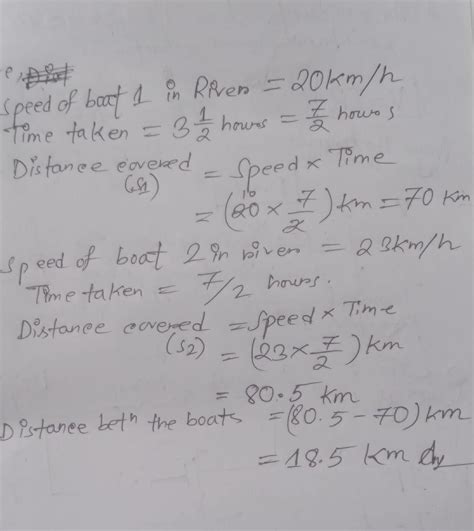 Speed of boat 1 in River = 20km/h
Time taken = 3 1/2 hours = 7/2 hours
Distance covered = Speed × Time
(S1)
= (20 × 7/2) km = 70 km
10
Speed of boat 2 in river = 23km/h
Time taken = 7/2 hours.
Distance covered = Speed × Time
(S2)
= (23 × 7/2) km
= 80.5 km
Distance betn the boats = (80.5 - 70) km
= 18.5 km